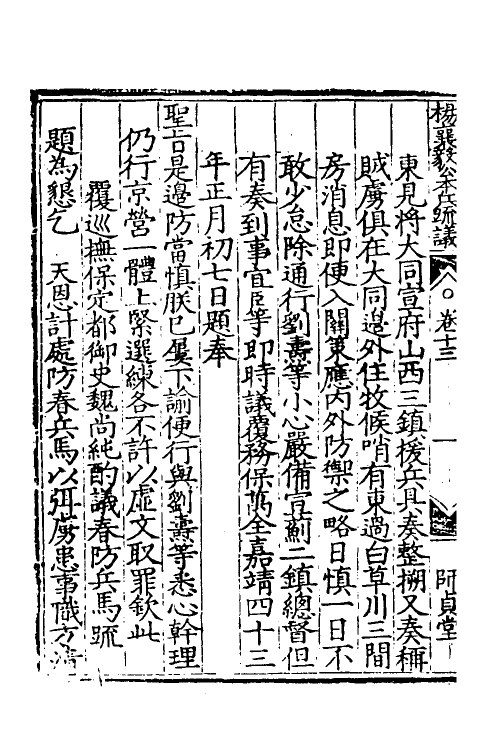 楊襄毅公本兵疏議 卷十三 一 師貞堂
東見將大同宣府山西三鎮援兵具奏整搠又奏稱
賊虜俱在大同邊外住牧候哨有東過白草川三間
房消息即便入關策應内外防禦之略日慎一日不
敢少怠除通行劉燾等小心嚴備宣薊二鎮總督但
有奏到事宜臣等即時議覆務保萬全嘉靖四十三
年正月初七日題奉
聖旨是邊防當慎朕已屢下諭便行與劉燾等悉心幹理
仍行京營一體上緊選練各不許以虛文取罪欽此
覆巡撫保定都御史魏尚純酌議春防兵馬疏
題為懇乞 天恩計處防春兵馬以弭虜患事職方清